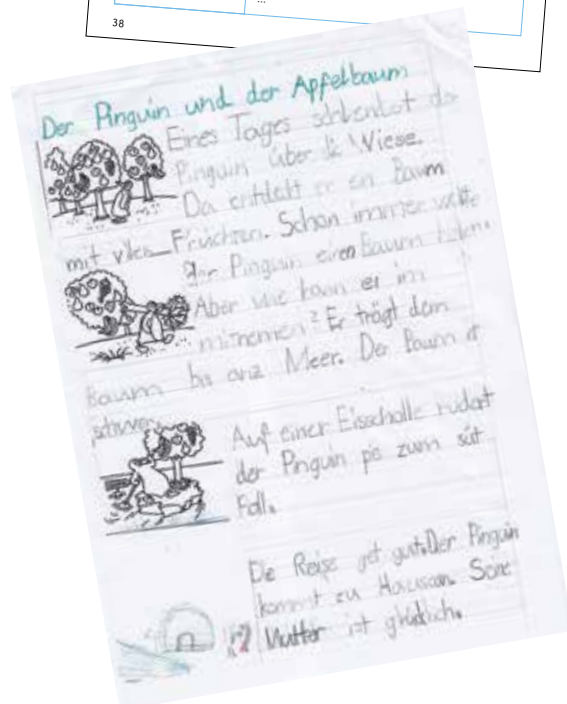 ...
38
Der Pinguin und der Apfelbaum
Eines Tages schlentet der
Pinguin über die Wiese.
Da entdekt er en Baum
mit vilen Früchten. Schon immer wollte
der Pinguin einen Baum holen.
Aber wie kann er im
mitnemen? Er trägt dem
Baum bis anz Meer. Der Baum ist
schwer.
Auf einer Eisscholle rudart
der Pinguin pis zum süt
Foll.
Die Reise get gut. Der Pinguin
kommt zu Hausan. Seine
Mutter ist glücklich.